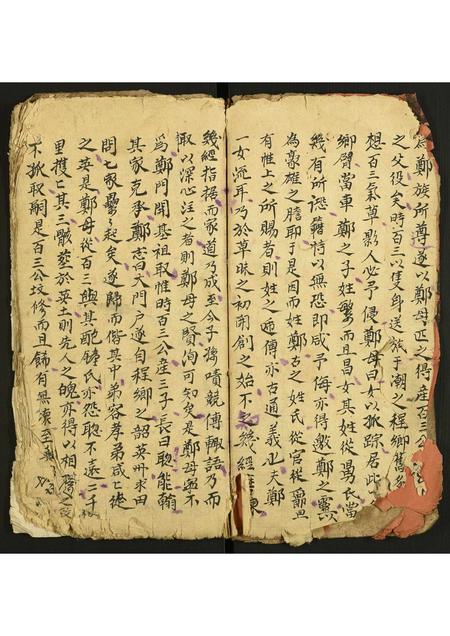 為鄭族所尊遂以鄭母匹之得産百三公
之父役矣時百三以隻身送殯于潮之程鄉舊
想百三氣草影人必予侵鄭母曰女以孤踪居此
鄉臂當車鄭之子姓繁而且昌女其姓從舅氏當
幾有所恐藉恃以無恐即咸予侮亦得邀鄭之靈
為豪雄之膽耶于是因而姓鄭古之姓氏從官從
有惟上之所賜者則姓之逓傳亦古通義也夫鄭
一女流耳乃於草昧之初開創之始不之幾經
幾經指揭而家道乃成至今子孫嘖嘖競傳輙語乃而
取以深心注之者則鄭母之賢洵可知矣是鄭母與不
為鄭門開基祖取惟時百三公産三子長曰聡能翰
其家克承鄭志曰大門戶遂自程鄉之韶英州求田
問已家孿起矣遂歸而偕其中弟容孝弟咸亡徙
之英是鄭母從百三與其配鍾氏亦怨聡不遠二千
里摟亡其三骸塟於英土則先人之魄亦得以相
不孤取嗣是百三公坟修而且飾有無壞至